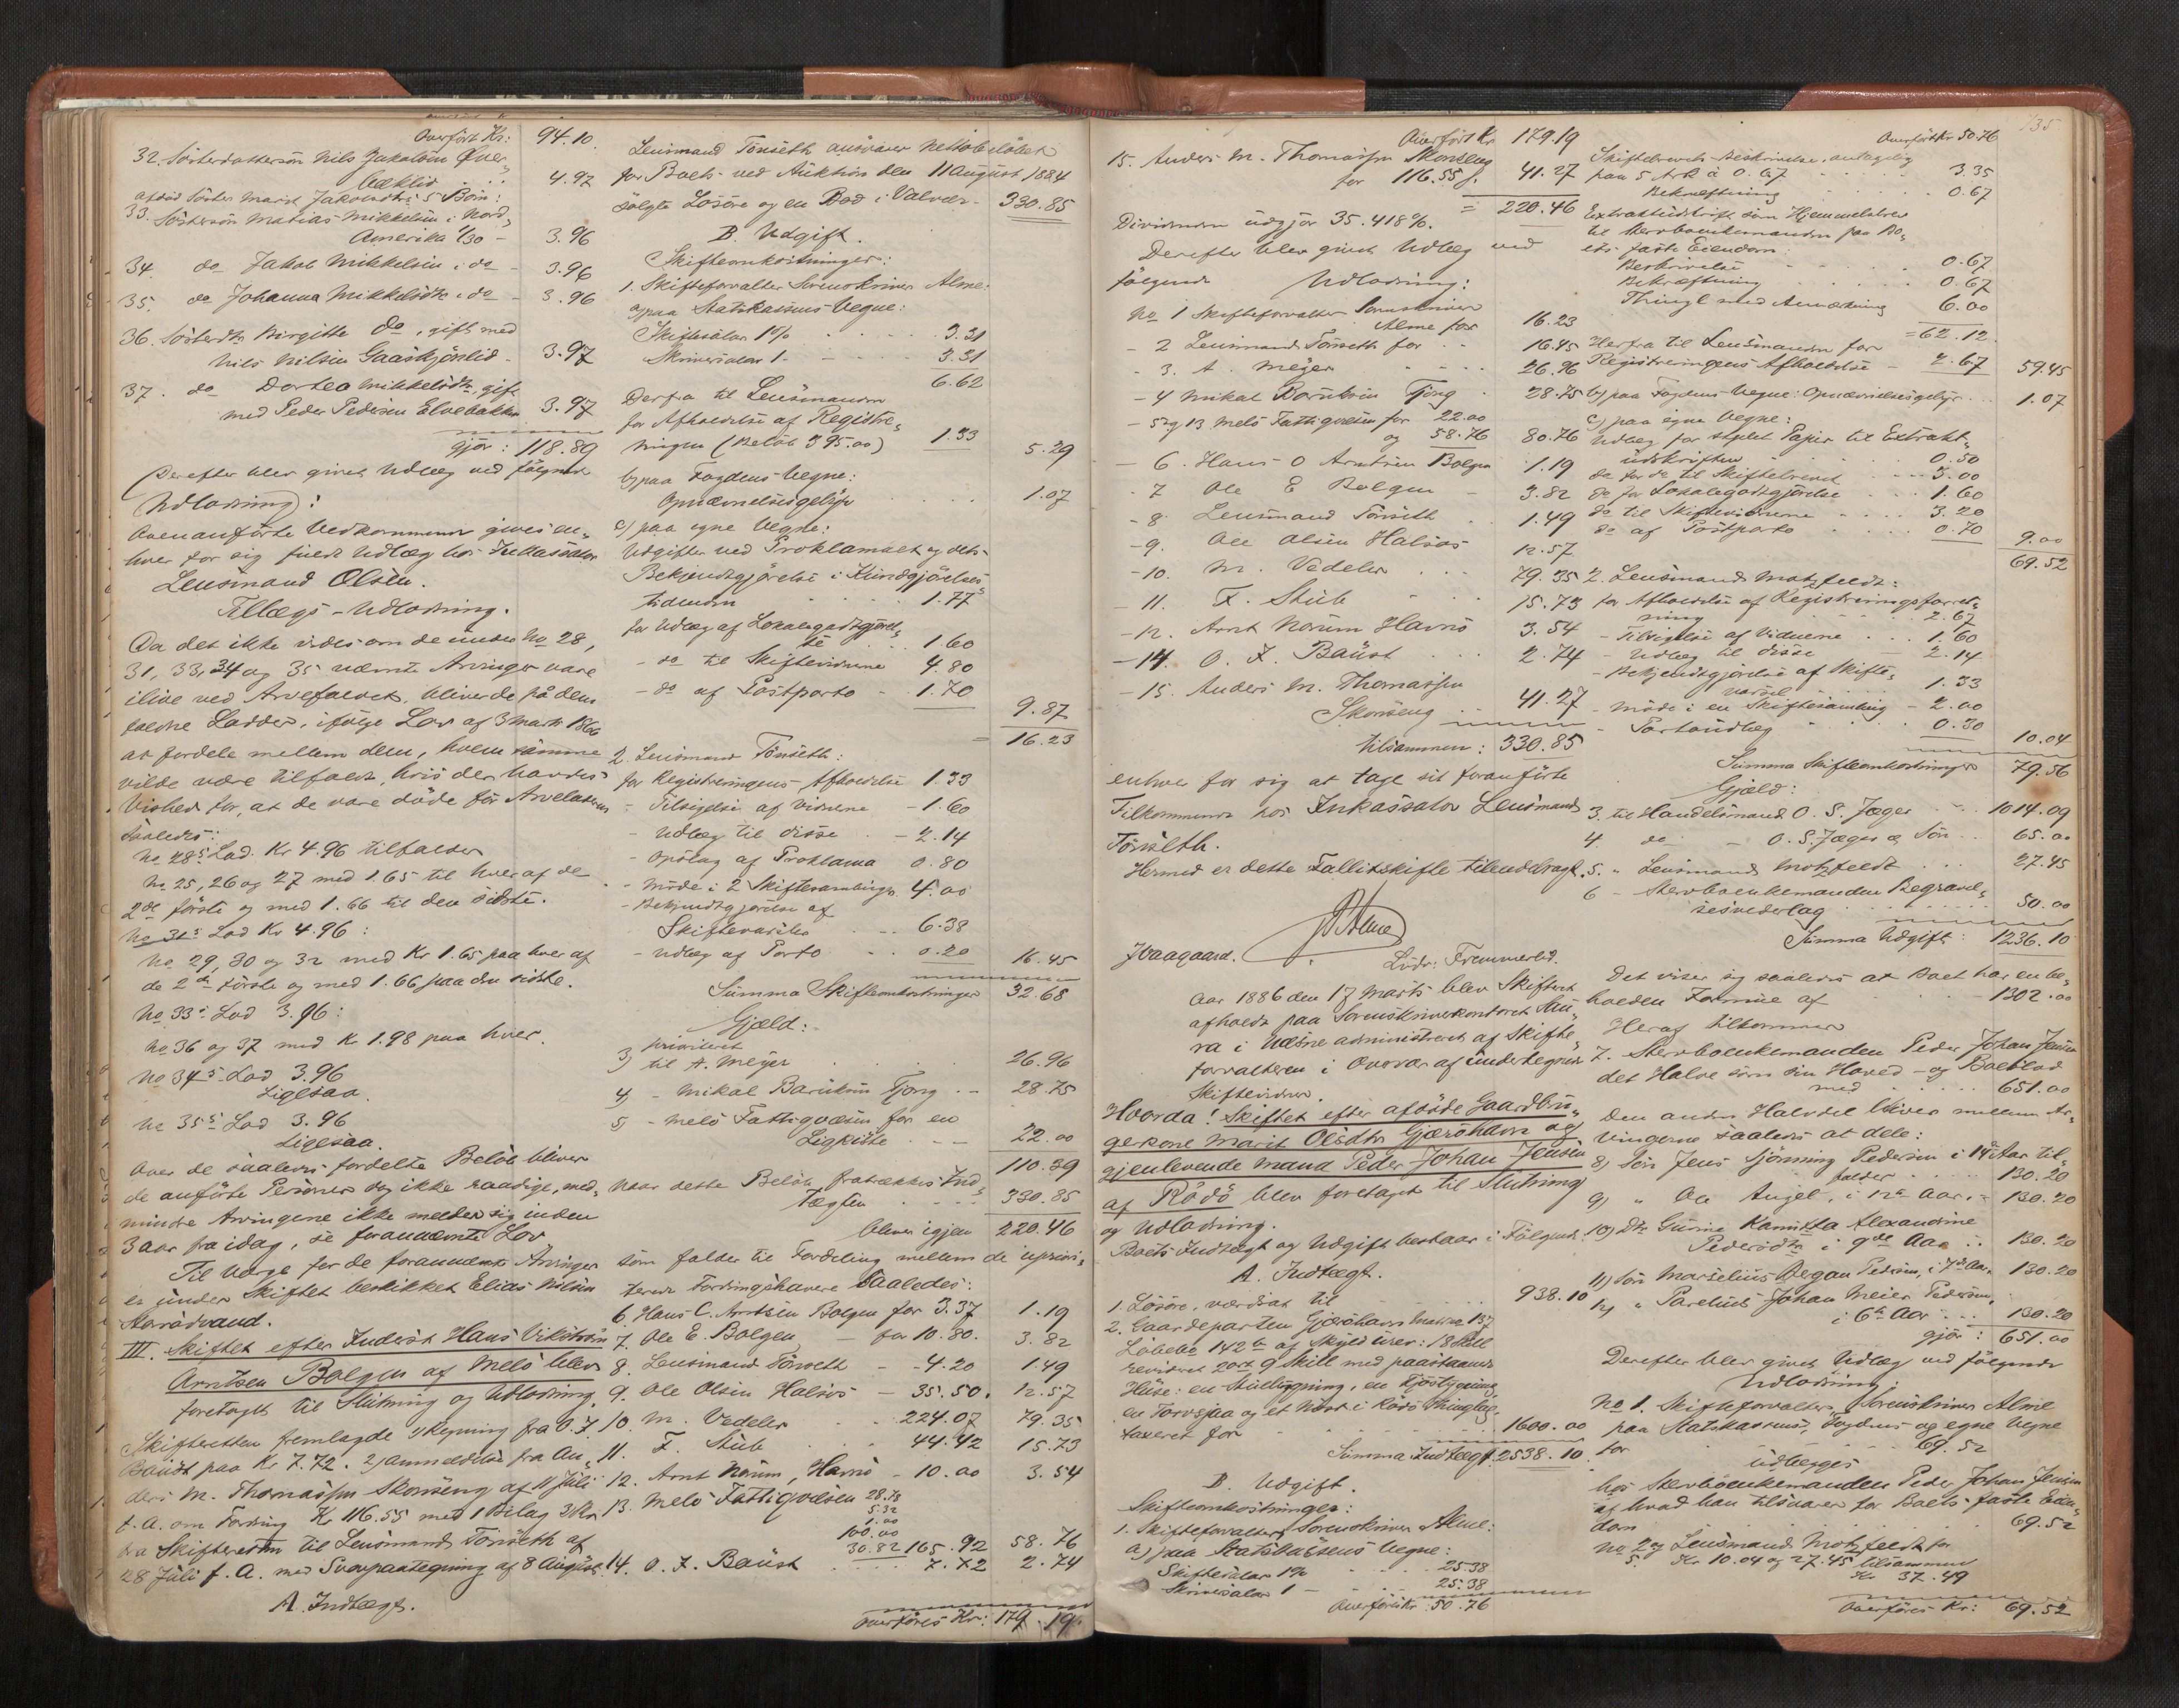 Overført Kr: 94.10.
32. Søsterdattersøn Nils Jakobsen Øver„
bæklid . . . 4.97
afdød Søster Marit Jakobsdtrs 5 Børn:
33. Søstersøn Matias Mikkelsen i Nord„
Amerika 1/30 – 3.96
34. do Jakob Mikkelsen i do – 3.96
35. do Johanna Mikkelsdtr i do – 3.96
36. Søsterdtr Birgitte do, gift med
Nils Nilsen Gaaskjønlid – 3.97
37. do Dortea Mikkelsdtr, gift
med Peder Pedersen Elvebakken 3.97
gjør: 118.89
Derefter blev givet Udlæg ved følgende
Udlodning:
Ovenanførte Vedkommende gives en„
hver for sig fuldt Udlæg hos Inkassator
Lensmand Olsen.
Tillægs-Udlodning.
Da det ikke vides om de under No 28,
31, 33, 34 og 35 nævnte Arvinger vare
ilive ved Arvefaldet, bliver de på dem
faldne Lodder, ifølge Lov af 3 Marts 1866
at fordele mellem dem, hvem samme
vilde være tilfaldt, hvis der havdes
Vished for, at de vare døde før Arveladeren
saaledes:
No 28s Lod. Kr 4.96 tilfalder
No 25, 26 og 27 med 1.65 til hver af de
2de første og med 1.66 til den sidste.
No 31s Lod Kr 4.96:
No 29, 30 og 32 med Kr 1.65 paa hver af
de 2de første og med 1.66 paa den sidste.
No 33s Lod 3.96:
No 36 og 37 med Kr 1.98 paa hver.
No 34s Lod 3.96
Ligesaa.
No 35s Lod 3.96
Ligesaa.
Over de saaledes fordelte Beløb bliver
de anførte Personer dog ikke raadige, med„
mindre Arvingene ikke melder sig inden
3 aar fra idag, se forannævnte Lov
Til Værge for de forannævnte Arvinger
er under Skiftet beskikket Elias Nilsen
Storådvand.
III. Skiftet efter Inderst Hans Vikstrøm
Arntzen Bolgen af Melø blev
foretaget til Slutning og Udlodning.
Skifteretten fremlagde 1) Regning fra O. F.
Baust paa Kr 7.72. 2) Anmeldelse fra An„
ders M. Thomassen Skonseng af 11 Juli
f. A. om Fordring Kr 116.55 med 1 Bilag 3) Kr.
fra Skifteretten til Lensmand Tønseth af
28 Juli f. A. med Svarpaategning af 8 August.
A. Indtægt.
Lensmand Tønseth ansvarer Nettobeløbet
for Boets ved Auktion den 11 August 1884
solgte Løsøre og en Bod i Valvær – 330.85
B. Udgift.
Skifteomkostninger:
1. Skifteforvalter Sorenskriver Alme:
a) paa Statskassens Vegne:
Skiftesalær 1% 3.31
Skriversalær 1 – 3.31
6.62
Derfra til Lensmanden
for Afholdelse af Registre„
ringen (Beløb 395.00) 1.33 5.29
b) paa Fogdens Vegne:
Opnævnelsesgebyr 1.07
c) paa egne Vegne:
Udgifter ved Proklamaet og dets
Bekjendtgjørelse i Kundgjørelses
tidenden 1.77
for Udlæg af Lokalegodtgjørel„
se 1.60
– do til Skiftevidnerne 4.80
– do af Postporto – 1.70
9.87
= 16.23
2. Lensmand Tønseth:
for Registreringens Afholdelse 1.33
– Tilsigelse af Vidnerne – 1.60
– Udlæg til disse – 2.14
– Opslag af Proklama 0.80
– Møde i 2 Skiftesamlinger 4.00
– Bekjendtgjørelse af
Skiftevarsler 6.38
– Udlæg af Porto 0.20 16.45
Summa Skifteomkostninger 32.68
Gjæld:
prioriteret
3) til A. Meyer 26.96
4) – Mikal Baruksen Tjong – 28.75
5) – Melø Fattigvæsen for en
Ligkiste 22.00
110.39
Naar dette Beløb fratrækkes Ind„
tægten 330.85
bliver igjen 220.46
som falder til Fordeling mellem de uprior„
terede Fordringshavere saaledes:
6. Hans C. Arntsen Bolgen for 3.37 1.19
7. Ole E. Bolgen – for 10.80. 3.82
8. Lensmand Tønseth – 4.20 1.49
9. Ole Olsen Halsos – 35.50. 12.57
10. M. Vedeler 224.07 79.35
11. F. Stub 44.42 15.73
12. Arnt Norum, Havnø – 10.00 3.54
13. Melø Fattigvæsen 28.78
5.32
1.00
100.00
30.82 165.92 58.76
14. O. F. Baust 7.72 2.74
Overføres Kr: 179.19
135
Overført Kr 179.19
15. Anders M. Thomassen Skonseng
for 116.55 f. 41.27
= 220.46
Dividenden udgjør 35.418%.
Derefter blev givet Udlæg ved
følgende Udlodning:
No 1 Skifteforvalter Sorenskriver
Alme for 16.23
– 2 Lensmand Tønseth for 16.45
– 3. A. Meyer 26.96
– 4 Mikal Baruksen Tjong 28.75
– 5 og 13 Melø Fattigvæsen for 22.00
og 58.76 80.76
– 6. Hans O Arntsen Bolgen 1.19
– 7 Ole E Bolgen 3.82
– 8. Lensmand Tønseth 1.49
– 9. Ole Olsen Halsos 12.57
– 10. M. Vedeler 79.35
– 11. F. Stub 15.73
– 12. Arnt Norum Havnø 3.54
– 14. O. F. Baust 2.74
– 15. Anders M. Thomassen
Skonseng 41.27
tilsammen: 330.85
enhver for sig at tage sit foranførte
Tilkommende hos Inkassator Lensmand
Tønseth.
Hermed er dette Fallitskifte tilendebragt.
Alme
Lvdr: Fremmerlid.
Aar 1886 den 17 Marts blev Skifteret
afholdt paa Sorenskriverkontoret Hau„
ra i Næsne administreret af Skifte„
forvalteren i Overvær af undertegnede
Skiftevidner.
Hvorda! Skiftet efter afdøde Gaardbru„
gerkone Marit Olsdtr Gjærøhavn og
gjenlevende Mand Peder Johan Jensen
af Rødø blev foretaget til Slutning
og Udlodning.
Boets Indtægt og Udgift bestaar i Følgende:
A. Indtægt.
1. Løsøre, værdsat til 938.10
2. Gaardeparten Gjærøhavn Matr. No 137
Løbebr 142 b af Skyld urev: 18 Skill
revideret 2 ort 9 Skill med paastaaende
Huse: en Stuebygning, en Fjøsbygning
en Torvsjaa og et Nøst i Rødø Thinglag
taxeret for 1600.00
Summa Indtægt. 2538.10
B. Udgift.
Skifteomkostninger:
1. Skifteforvalter, Sorenskriver Alme:
a) paa Statskassens Vegne:
Skiftesalær 1% 25.38
Skriversalær 1 – 25.38
Overføres Kr 50.76
Overført Kr 50.76
Skiftebrevets Beskrivelse, antagelig
paa 5 Ark à 0.67 3.35
Bekræftning 0.67
Extraktudskrift som Hjemmelsbrev
til Stervboenkemanden paa Bo„
ets faste Eiendom:
Beskrivelse 0.67
Bekræftning 0.67
Thingl. med Anmærkning 6.00
= 62.12.
Herfra til Lensmanden for
Registreringens Afholdelse – 2.67 59.45
b) paa Fogdens Vegne: Opnævnelsesgebyr 1.07
c) paa egne Vegne:
Udlæg for stplet Papir til Extrakt„
udskriften 0.50
do for do til Skiftebrevet 3.00
do for Lokalegodtgjørelse 1.60
do til Skiftevidnerne 3.20
do af Postporto 0.70
9.00
69.52
2. Lensmand Motzfeldt:
for Afholdelse af Registreringsforret„
ning 2.67
– Tilsigelse af Vidnerne 1.60
– Udlæg til disse – 2.14
– Bekjendtgjørelse af Skifte„
varsel 1.33
– Møde i en Skiftesamling – 2.00
– Portoudlæg 0.30
10.04
Summa Skifteomkostninger 79.56
Gjæld:
3. til Handelsmand O. S. Jæger 1014.09
4. do – O. S. Jæger & Søn 65.00
5. „ Lensmand Motzfeldt 27.45
6 – Stervboenkemanden Begravel„
sesvederlag 50.00
Summa Udgift: 1236.10
Det viser sig saaledes at Boet har en be„
holden Formue af 1302.00
Heraf tilkommer
7. Stervboenkemanden Peder Johan Jensen
det Halve som sin Hoved- og Boeslod
med 651.00
Den anden Halvdel bliver mellem Ar„
vingerne saaledes at dele:
8) Søn Jens Tjønning Pedersen i 14de Aar til„
falder 130.20
9) „ Ole Angel, i 12te Aar, 130.20
10) Dtr Gurine Kamitta Alexandrine
Pedersdtr i 9de Aar 130.20
11) Søn Marselius Degan Pedersen, i 7de Aar 130.20
12) „ Parelius Johan Meier Pedersen,
i 6te Aar 130.20
gjør: 651.00
Derefter blev givet Udlæg ved følgende
Udlodning:
No 1. Skifteforvalter, Sorenskriver Alme
paa Statskassens, Fogdens og egne Vegne
for 69.52
udlægges
hos Stervboenkemanden Peder Johan Jensen
af hvad han tilsvarer for Boets faste Eien„
dom 69.52
No 2 og 5. Lensmand Motzfeldt for
Kr 10.04 og 27.45 tilsammen
Kr 37.49
Overføres Kr: 69.52